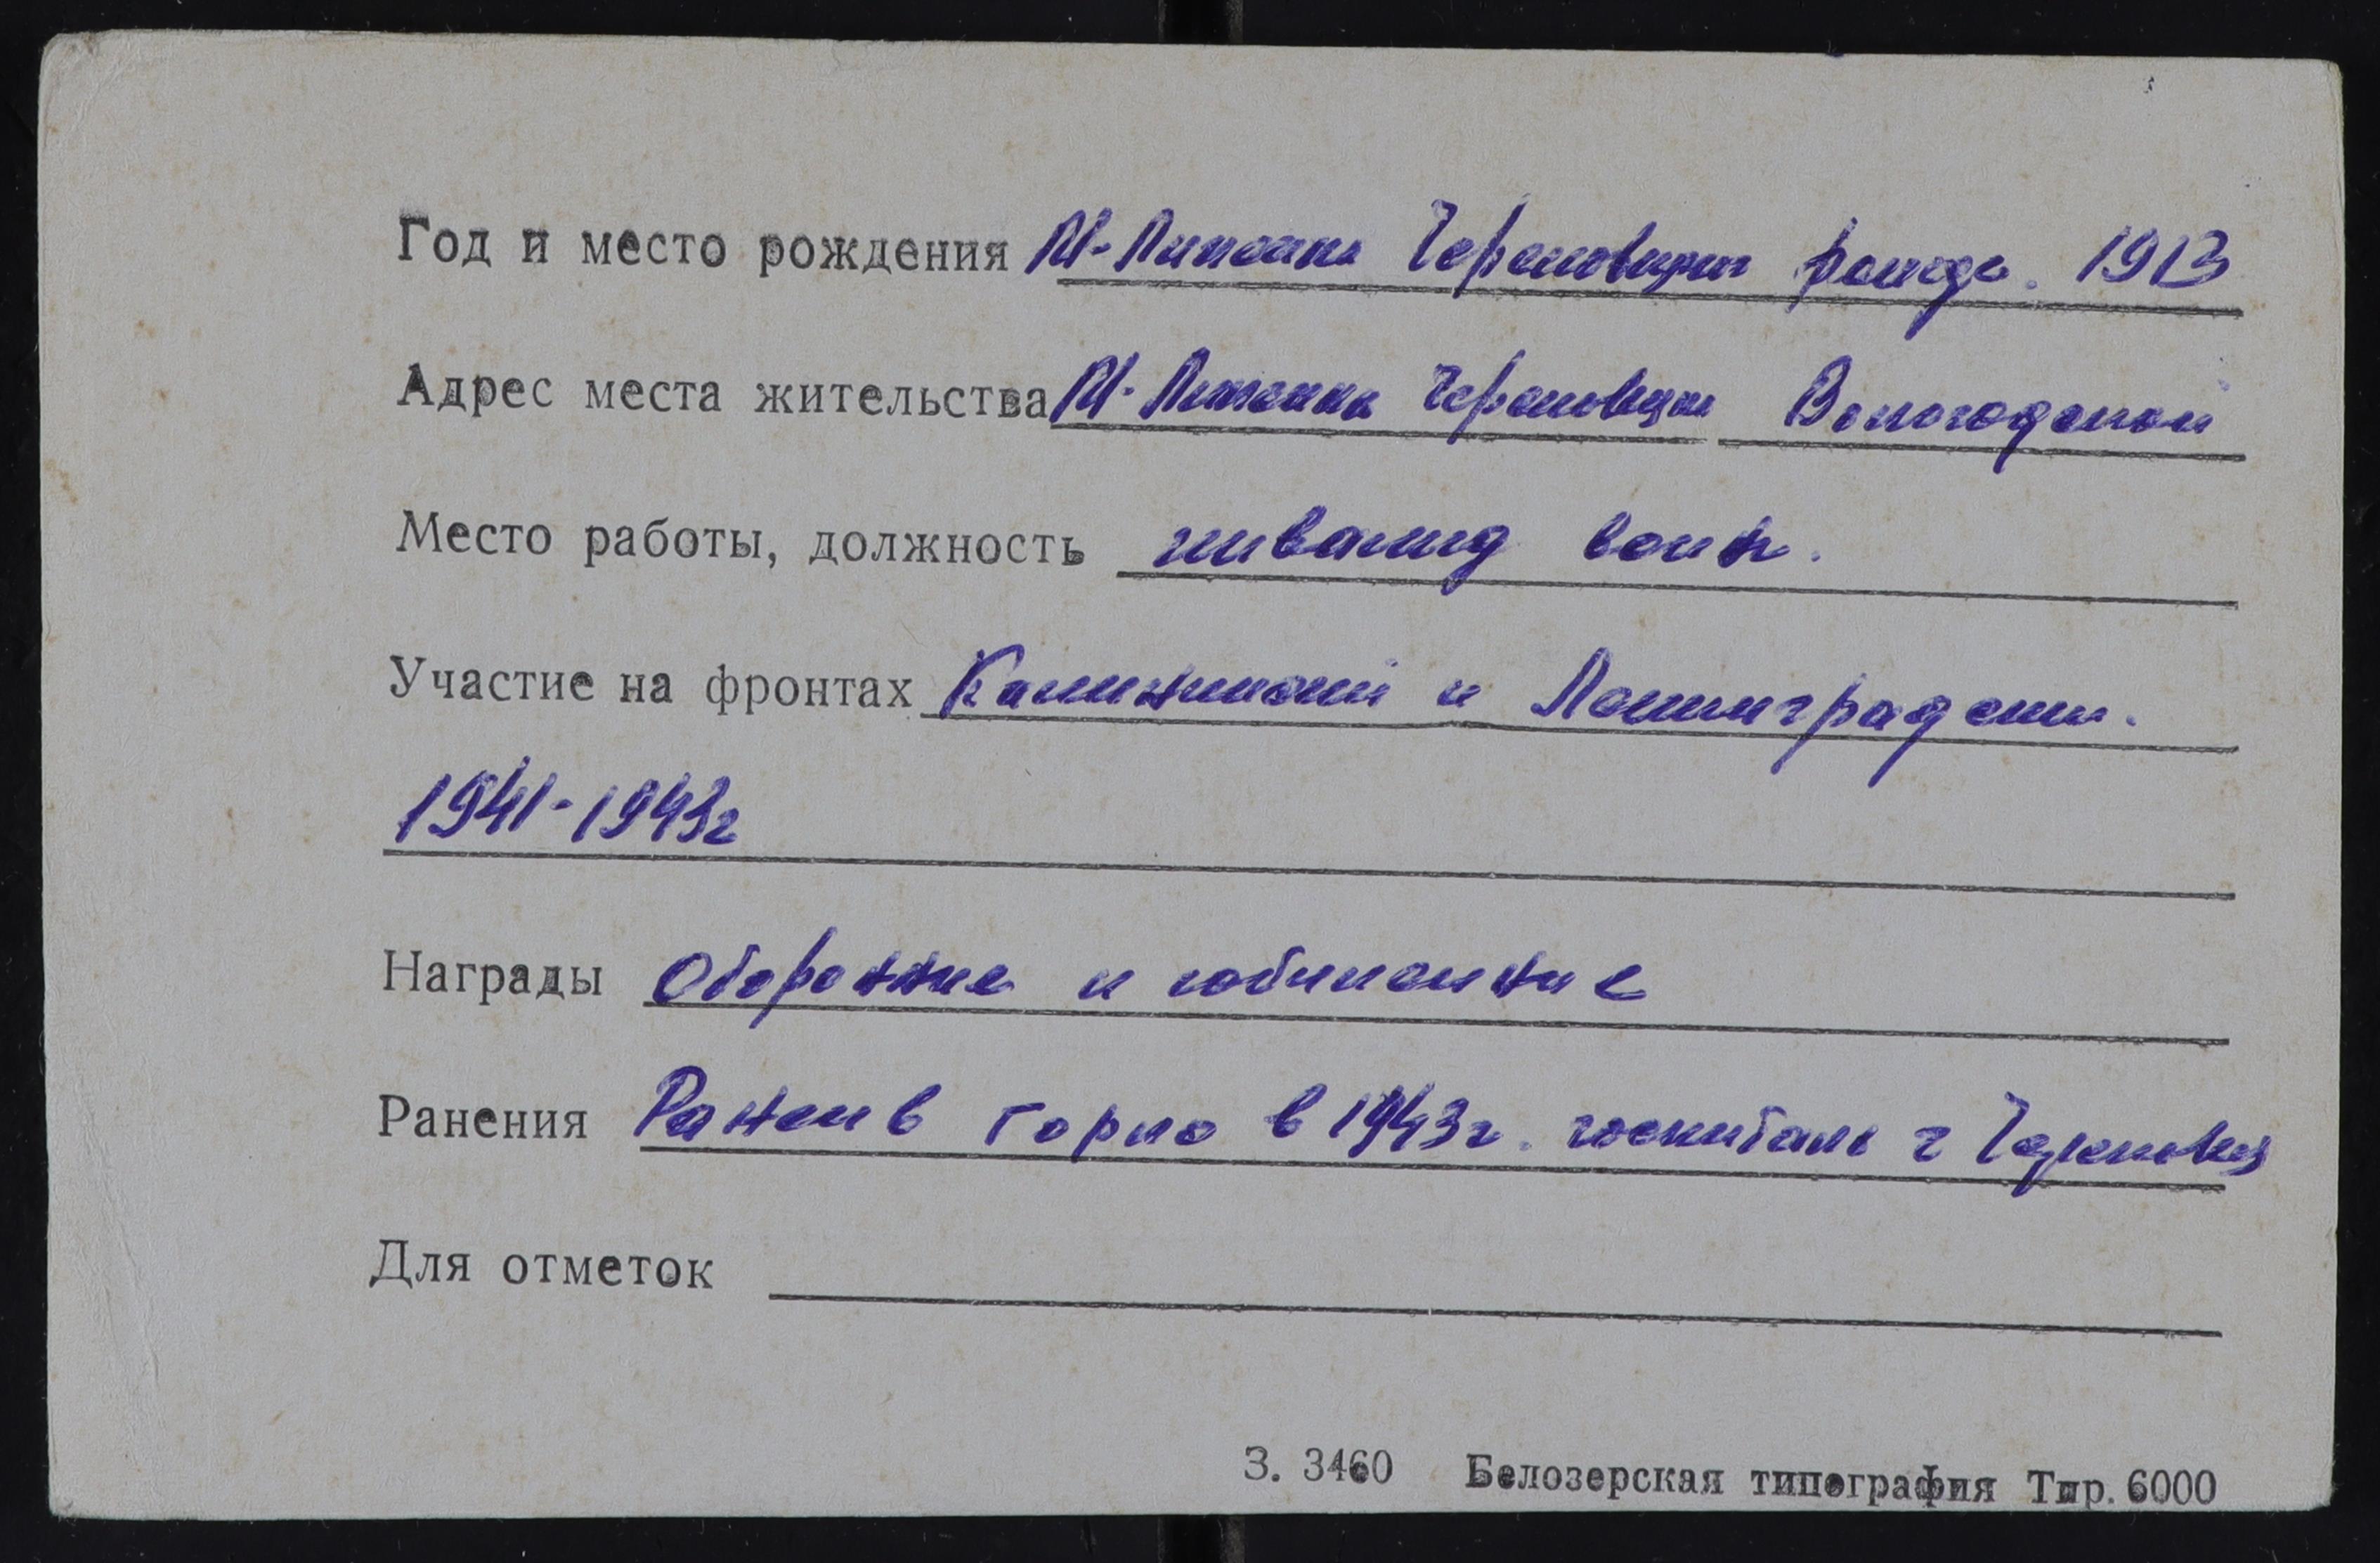 Год и место рождения М-Липенка Череповецк рожде. 1913
Адрес места жительства М-Липенка Череповецк Вологодской
Место работы, должность инвалид войн.
Участие на фронтах Калининский и Ленинградски.
1941-1943г
Награды Оборонные и юбилейные
Ранения Ранен в горло в 1943г. госпиталь г Череповец
Для отметок
З. 3460 Белозерская типография Тир. 6000